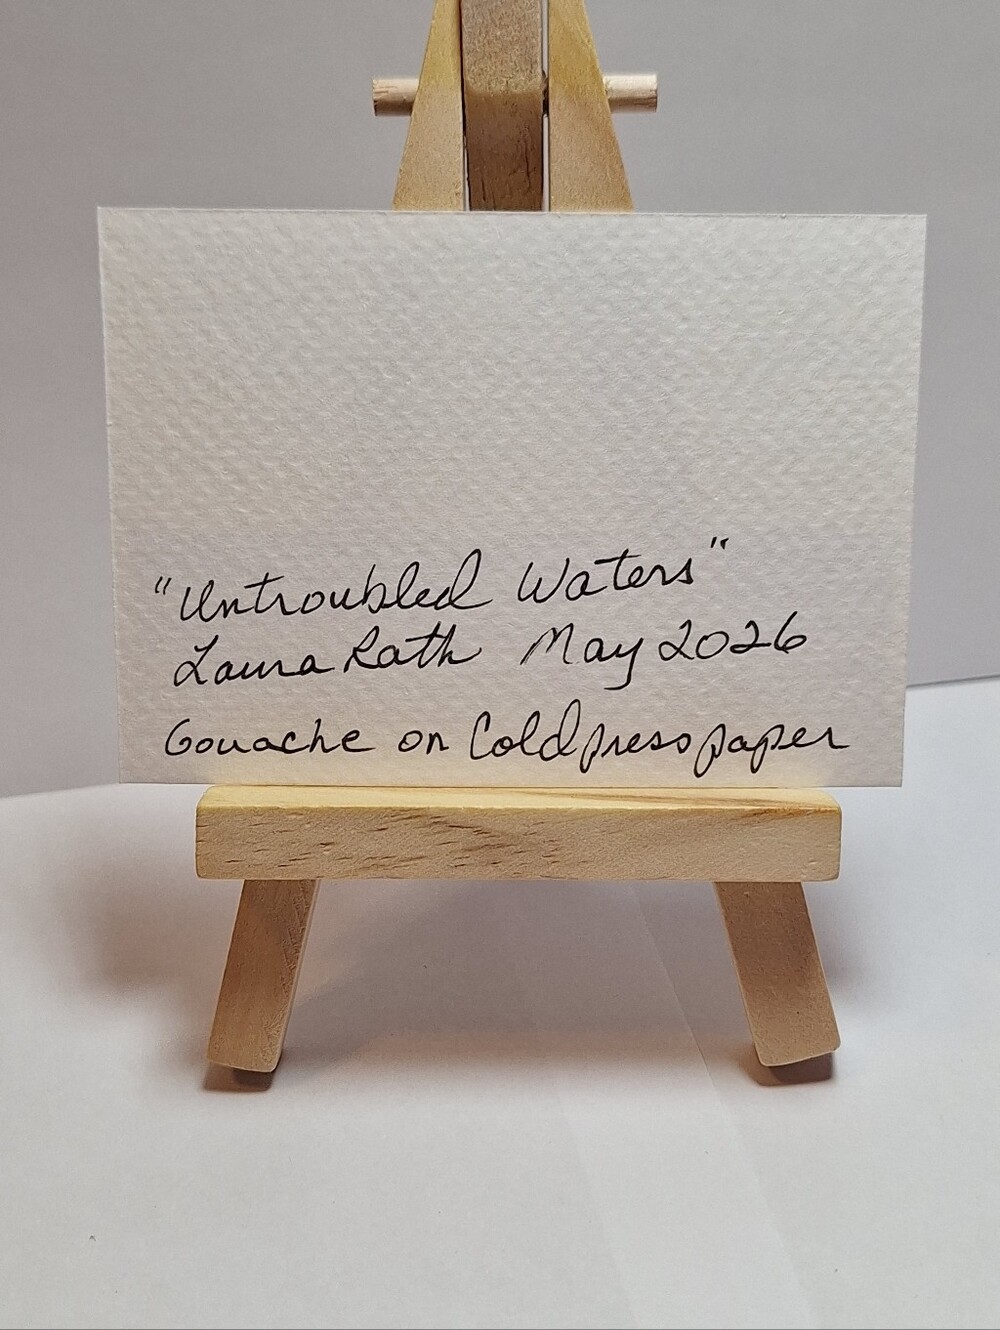 "Untroubled Waters"
Laura Rath May 2026
Gouache on Coldpress paper